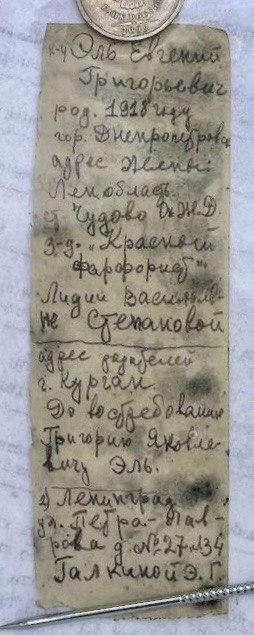 к-н Эль Евгений
Григорьевич
род. 1918 году
гор. Днепропетровск
адрес жены:
Лен область
ст. Чудово Окт.Ж.Д.
з-д. "Красный
фарфорист"
Лидии Василье-
не Степановой
адрес родителей
г. Курган
До востребования
Григорию Яковле-
вичу Эль.
Ленинград
ул. Петра-Лав-
рова д. №27.
Галкиной Э. Г.